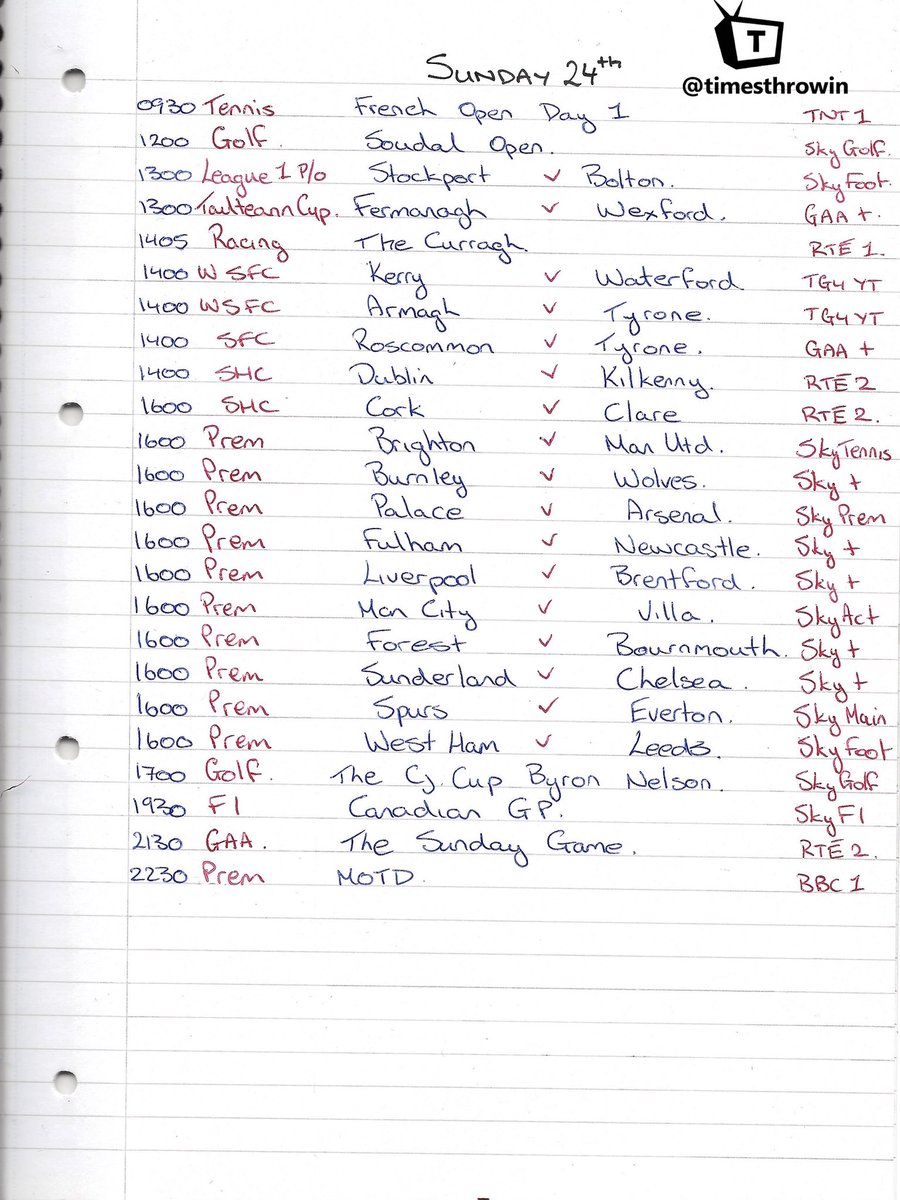 T
SUNDAY 24th
@timesthrowin
0930 Tennis French Open Day 1 TNT 1
1200 Golf. Soudal Open. Sky Golf.
1300 League 1 P/o Stockport v Bolton. Sky Foot.
1300 Tailteann Cup. Fermanagh v Wexford. GAA +.
1405 Racing The Curragh. RTÉ 1.
1400 W SFC Kerry v Waterford. TG4 YT
1400 WSFC Armagh v Tyrone. TG4 YT
1400 SFC Roscommon v Tyrone. GAA +
1400 SHC Dublin v Kilkenny. RTÉ 2
1600 SHC Cork v Clare RTÉ 2.
1600 Prem Brighton v Man Utd. Sky Tennis
1600 Prem Burnley v Wolves. Sky +
1600 Prem Palace v Arsenal. Sky Prem
1600 Prem Fulham v Newcastle. Sky +
1600 Prem Liverpool v Brentford. Sky +
1600 Prem Man City v Villa. Sky Act
1600 Prem Forest v Bournmouth. Sky +
1600 Prem Sunderland v Chelsea. Sky +
1600 Prem Spurs v Everton. Sky Main
1600 Prem West Ham v Leeds. Sky Foot
1700 Golf. The Cj. Cup Byron Nelson. Sky Golf
1930 F1 Canadian GP. Sky F1
2130 GAA. The Sunday Game. RTÉ 2.
2230 Prem MOTD. BBC 1